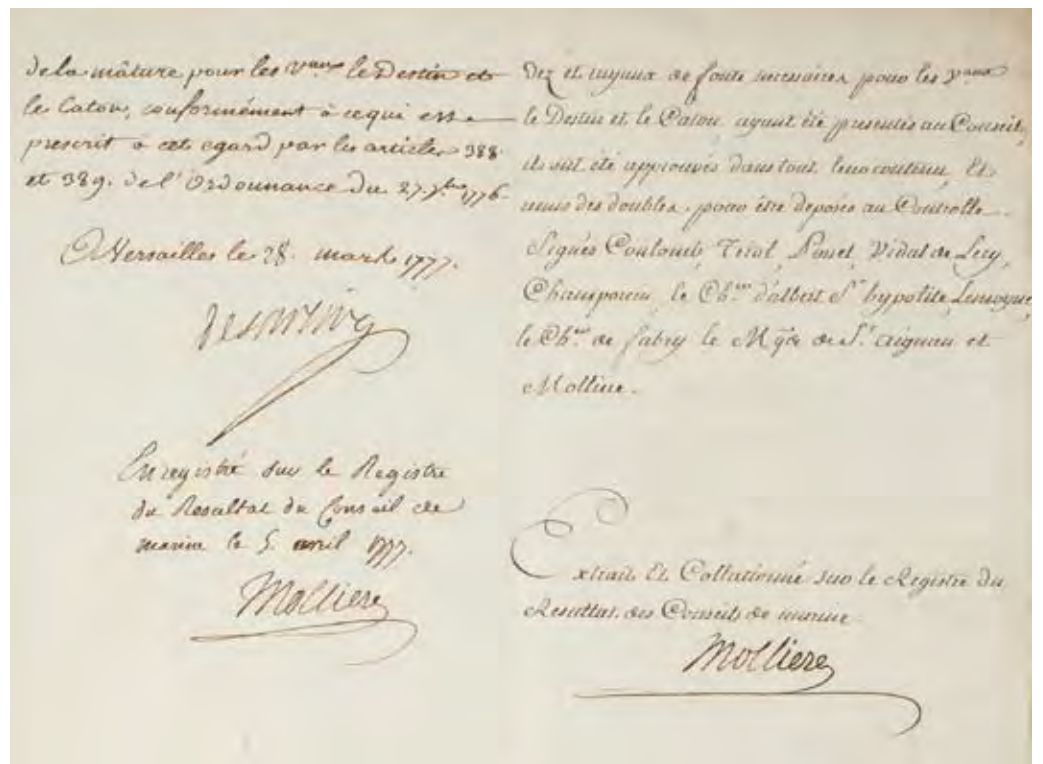 de la mâture pour les V.aux le Destin et
le Caton, conformément à ce qui est
prescrit à cet egard par les articles 388.
et 389. de l'Ordonnance du 27. 7.bre 1776.
A Versailles le 28. mars 1777.
De Sartine
Enregistré sur le Registre
du Resultat du Conseil de
marine le 5. avril 1777.
Molliere
Dez et tuyaux de fonte necessaires pour les V.aux
le Destin et le Caton, ayant été presentés au Conseil,
ils ont été approuvés dans tout leur contenu, Et
unis des doubles, pour être deposés au Controlle.
Signés Coulomb, Pouet, Vidal de Lery,
le Ch.er d'albert S.t hypolite, Lemoyne,
le Ch.er de fabry le M.qis de S.t aignan et
Molliere.
Extrait Et Collationné sur le Registre du
Resultat des Conseils de marine
Molliere